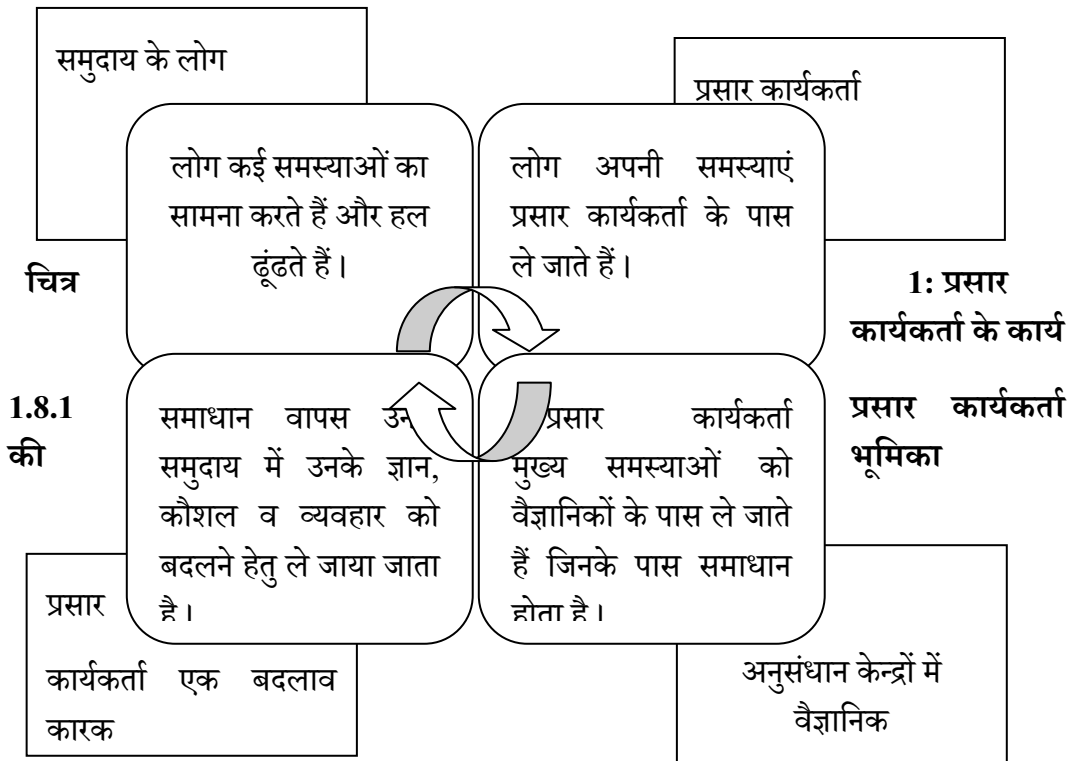 समुदाय के लोग
प्रसार कार्यकर्ता
लोग कई समस्याओं का
सामना करते हैं और हल
ढूंढते हैं।
लोग अपनी समस्याएं
प्रसार कार्यकर्ता के पास
ले जाते हैं।
चित्र 1: प्रसार
कार्यकर्ता के कार्य
1.8.1 प्रसार कार्यकर्ता
की भूमिका
समाधान वापस
समुदाय में उनके ज्ञान,
कौशल व व्यवहार को
बदलने हेतु ले जाया जाता
है।
प्रसार कार्यकर्ता
मुख्य समस्याओं को
वैज्ञानिकों के पास ले जाते
हैं जिनके पास समाधान
होता है।
प्रसार
कार्यकर्ता एक बदलाव
कारक
अनुसंधान केन्द्रों में
वैज्ञानिक